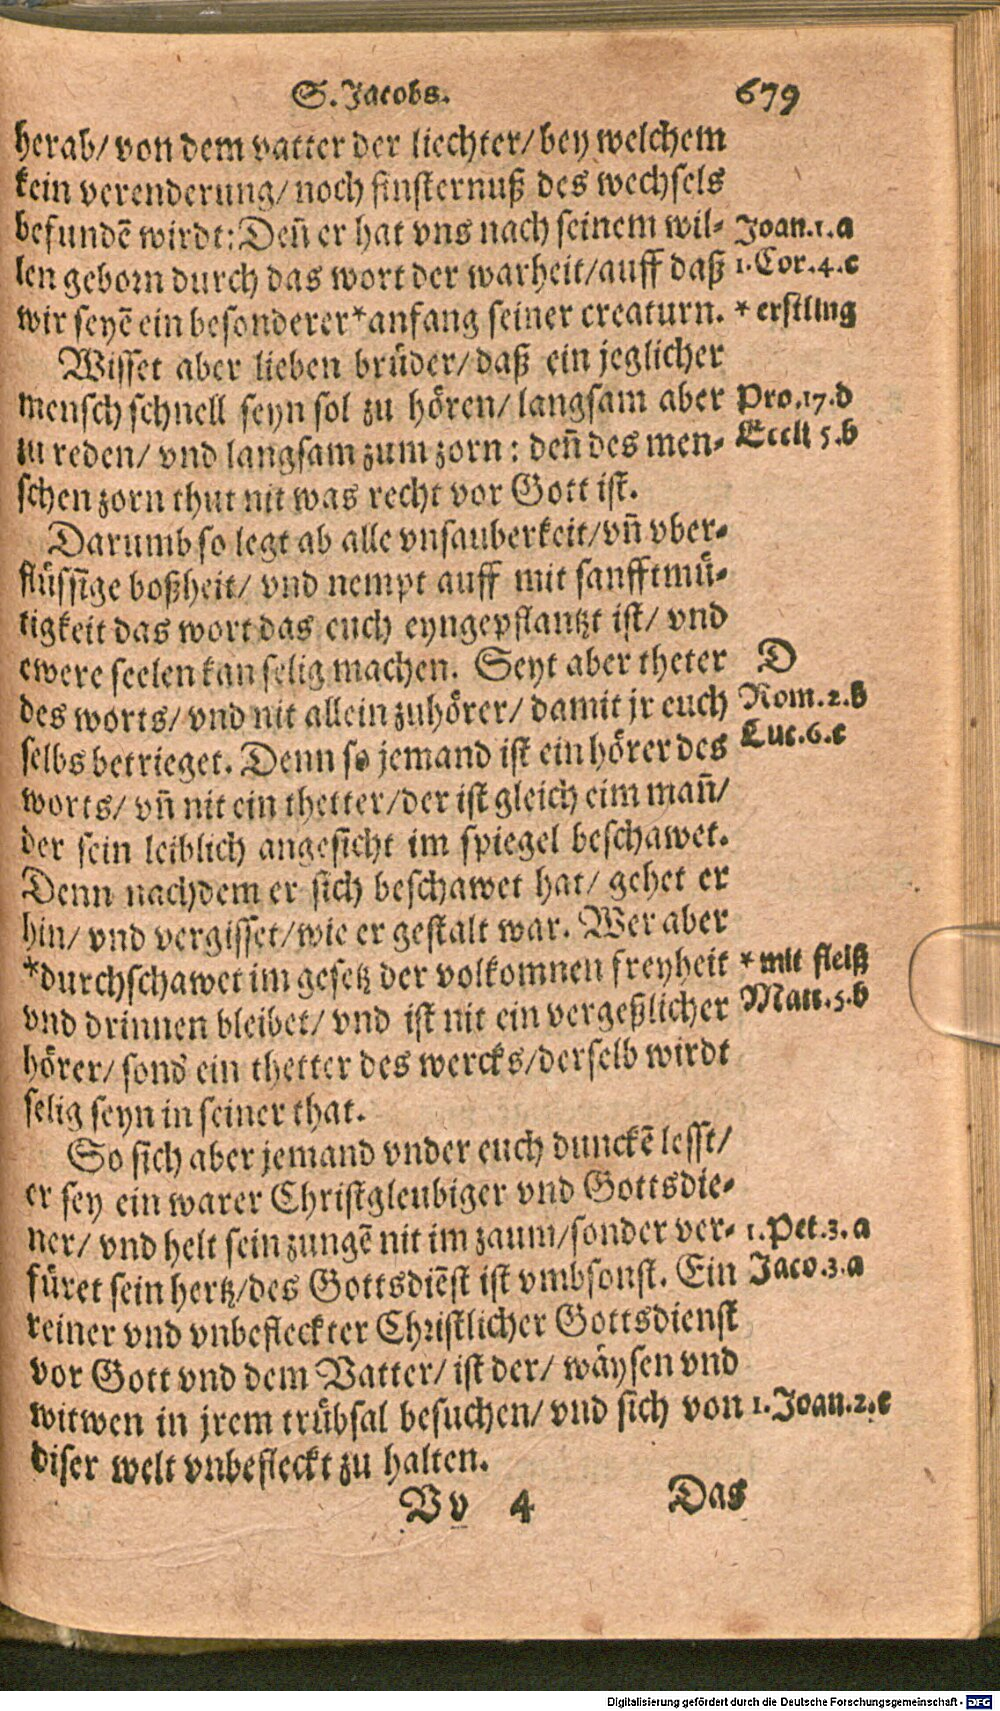 S. Jacobs. 679
herab/ von dem vatter der liechter/ bey welchem
kein verenderung/ noch finsternuß des wechsels
befundē wirdt: Deñ er hat vns nach seinem wil- Joan.1.a
len geborn durch das wort der warheit/ auff daß 1.Cor.4.c
wir seyē ein besonderer *anfang seiner creaturn. * erstling
Wisset aber lieben brüder/ daß ein jeglicher
mensch schnell seyn sol zu hören/ langsam aber Pro.17.d
zu reden/ vnd langsam zum zorn: deñ des men- Eccli 5.b
schen zorn thut nit was recht vor Gott ist.
Darumb so legt ab alle vnsauberkeit/ vñ vber-
flüssige boßheit/ vnd nempt auff mit sanfftmü-
tigkeit das wort das euch eyngepflantzt ist/ vnd
ewere seelen kan selig machen. Seyt aber theter D
des worts/ vnd nit allein zuhörer/ damit jr euch Rom.2.b
selbs betrieget. Denn so jemand ist ein hörer des Luc.6.e
worts/ vñ nit ein thetter/ der ist gleich eim mañ/
der sein leiblich angesicht im spiegel beschawet.
Denn nachdem er sich beschawet hat/ gehet er
hin/ vnd vergisset/ wie er gestalt war. Wer aber
*durchschawet im gesetz der volkomnen freyheit * mit fleiß
vnd drinnen bleibet/ vnd ist nit ein vergeßlicher Matt.5.b
hörer/ sond ein thetter des wercks/ derselb wirdt
selig seyn in seiner that.
So sich aber jemand vnder euch dunckē lesst/
er sey ein warer Christgleubiger vnd Gottsdie-
ner/ vnd helt sein zungē nit im zaum/ sonder ver- 1.Pet.3.a
füret sein hertz/ des Gottsdiēst ist vmbsonst. Ein Jaco.3.a
reiner vnd vnbefleckter Christlicher Gottsdienst
vor Gott vnd dem Vatter/ ist der/ wäysen vnd
witwen in jrem trübsal besuchen/ vnd sich von 1.Joan.2.c
diser welt vnbefleckt zu halten.
Vv 4 Das
Digitalisierung gefördert durch die Deutsche Forschungsgemeinschaft - DFG